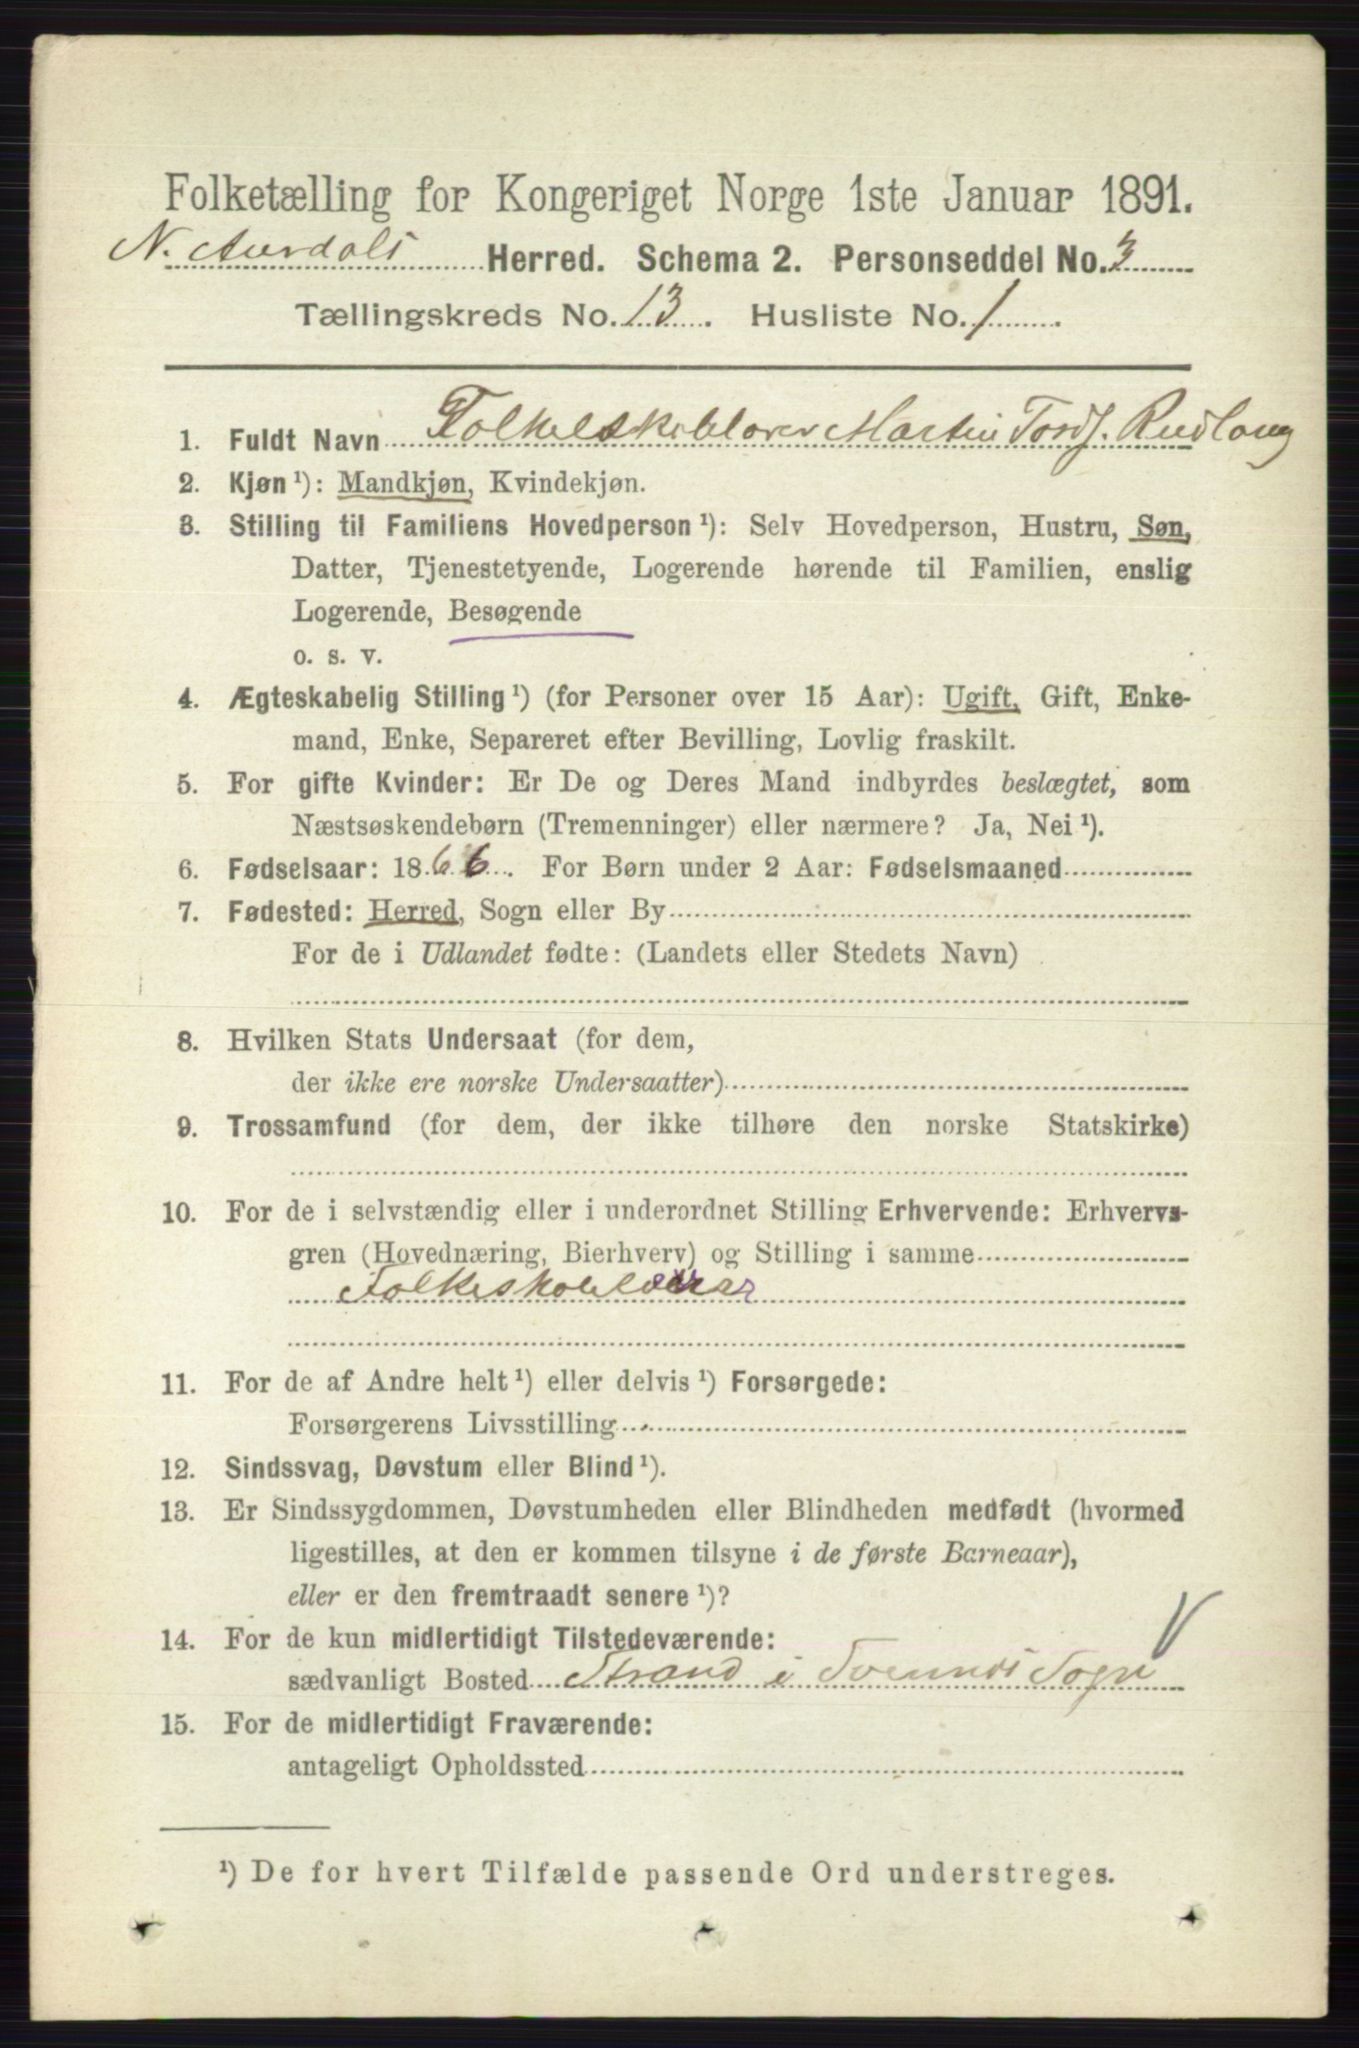 Folketælling for Kongeriget Norge 1ste Januar 1891.
N. Aurdals Herred. Schema 2. Personseddel No. 3
Tællingskreds No. 13. Husliste No. 1
1. Fuldt Navn Folkeskolelærer Martin Tordf. Rudlang
2. Kjøn ¹): Mandkjøn, Kvindekjøn.
3. Stilling til Familiens Hovedperson ¹): Selv Hovedperson, Hustru, Søn,
Datter, Tjenestetyende, Logerende hørende til Familien, enslig
Logerende, Besøgende
o. s. v.
4. Ægteskabelig Stilling ¹) (for Personer over 15 Aar): Ugift, Gift, Enke-
mand, Enke, Separeret efter Bevilling, Lovlig fraskilt.
5. For gifte Kvinder: Er De og Deres Mand indbyrdes beslægtet, som
Næstsøskendebørn (Tremenninger) eller nærmere? Ja, Nei ¹).
6. Fødselsaar: 1866. For Børn under 2 Aar: Fødselsmaaned
7. Fødested: Herred, Sogn eller By
For de i Udlandet fødte: (Landets eller Stedets Navn)
8. Hvilken Stats Undersaat (for dem,
der ikke ere norske Undersaatter)
9. Trossamfund (for dem, der ikke tilhøre den norske Statskirke)
10. For de i selvstændig eller i underordnet Stilling Erhvervende: Erhvervs-
gren (Hovednæring, Bierhverv) og Stilling i samme
Folkeskolelærer
11. For de af Andre helt ¹) eller delvis ¹) Forsørgede:
Forsørgerens Livsstilling
12. Sindssvag, Døvstum eller Blind ¹).
13. Er Sindssygdommen, Døvstumheden eller Blindheden medfødt (hvormed
ligestilles, at den er kommen tilsyne i de første Barneaar),
eller er den fremtraadt senere ¹)?
14. For de kun midlertidigt Tilstedeværende:
sædvanligt Bosted Strand i Svennes Sogn
15. For de midlertidigt Fraværende:
antageligt Opholdssted
¹) De for hvert Tilfælde passende Ord understreges.